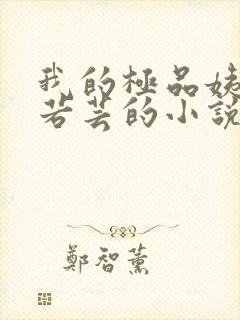 我的極品姨
若芸的小說
鄭智薰